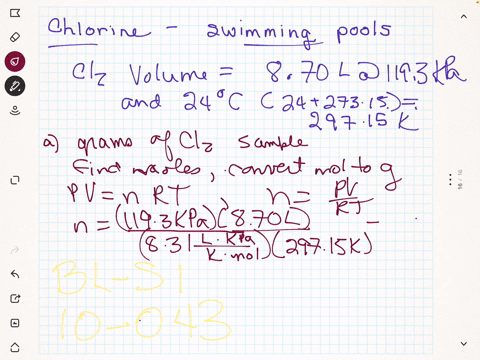 Chlorine - swimming pools
Cl2 Volume = 8.70 L @ 119.3 kPa
and 24°C (24+273.15) =
297.15 K
a) grams of Cl2 sample
find moles, convert mol to g
PV = n RT, n = PV/RT
n = (119.3 KPa)(8.70L) / (8.31 L·KPa/K·mol)(297.15K) =
BL-SI
10-043